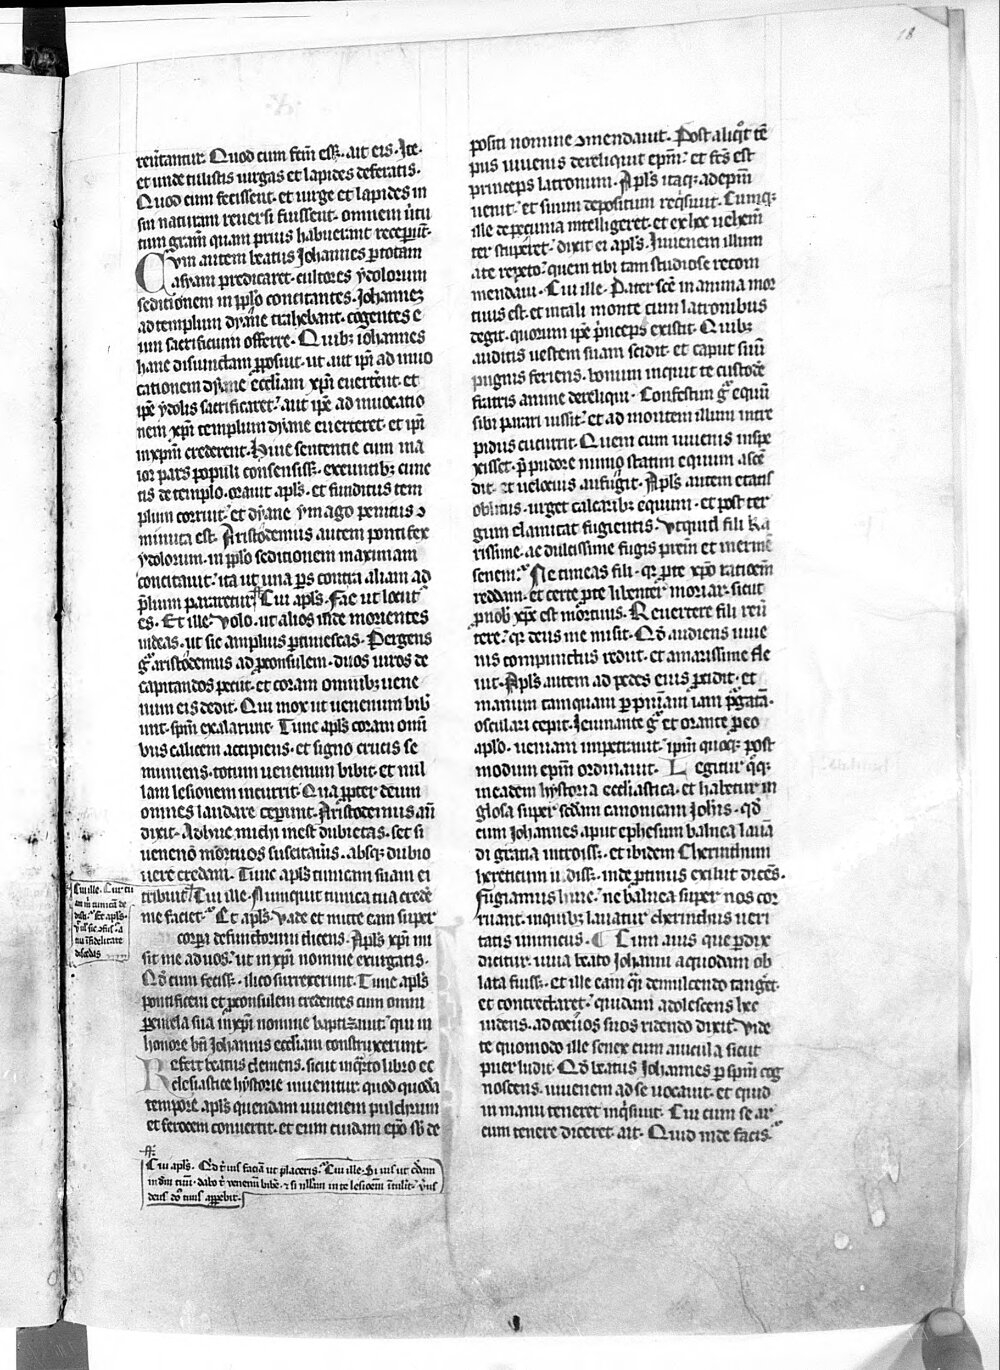 18
reuertantur. Quod cum fecissent. ait eis. Ite.
et unde tulistis uirgas et lapides deferatis.
Quod cum fecissent. et uirge et lapides in
suam naturam reuersi fuissent. omnem uirtu
tum graciam quam prius habuerant receperunt.
Cum autem beatus Johannes per totam
asyam predicaret. cultores ydolorum
seditionem in pplo concitantes. Johannem
ad templum dyane trahebant. cogentes e
um sacrificium offerre. Quibz iohannes
hanc disiunctam pposuit. ut. aut ipi ad inuo
cationem dyane eccliam xpi euerterent. et
ipe ydolis sacrificaret. aut ipe ad inuocatio
nem xpi templum dyane euerteret. et ipi
in xpm crederent. Huic sententie cum ma
ior pars populi consensiss. exeuntibz cunc
tis de templo. orauit apls. et funditus tem
plum corruit. et dyane ymago penitus com
minuta est. Aristodemus autem pontifex
ydolorum. in pplo seditionem maximam
concitauit. ita ut una ps contra aliam ad
prelium pararetur. Cui apls. Fac ut locut
es. Et ille. Volo. ut alios inde morientes
uideas. ut sic amplius ptimescas. Pergens
g aristodemus ad pconsulem. duos uiros de
capitandos petiit. et coram omnibz uene
num eis dedit. Qui mox ut uenenum bib
unt. spm exalarunt. Tunc apls coram omni
bus calicem accipiens. et signo crucis se
muniens. totum uenenum bibit. et nul
lam lesionem incurrit. Qua ppter deum
omnes laudare ceperunt. Aristodemus aut
dixit. Adhuc michi inest dubietas. set si
ueneno mortuos suscitauis. absqz dubio
uere credam. Tunc apls tunicam suam ei
tribuit. Cui ille. Nunquit tunica tua crede
me faciet. Et apls. Vade et mitte eam super
corpa defunctorum dicens. Apls xpi mi
sit me ad uos. ut in xpi nomine exurgatis.
Qd cum feciss. ilico surrexerunt. Tunc apls
pontificem et pconsulem credentes cum omni
parentela sua in xpi nomine baptizauit. qui in
honore bti Johannis eccliam construxerunt.
Refert beatus clemens. sicut in qrto libro ec
clesiastice hystorie inuenitur. quod quoda
tempore apls quendam iuuenem pulchrum
et ferocem conuertit. et eum cuidam epo sb de
Cui ille. Cur tu
am m tunicam de
disti. Et apls.
Vt sic confus a
tua infidelitate
discedas
Cui apls. Qd t uis faciam ut placeris. Cui ille. Si uis ut credam
in dm tuum. dabo t uenenum bibe. et si nullam in te lesionem intulit. uerus
deus do tuus apparebit.
positi nomine commendauit. Post aliqt tem
pus iuuenis dereliquit epm. et fcs est
princeps latronum. Apls itaqz ad epm
uenit. et suum depositum reqsiuit. Cumqz
ille de pecunia intelligeret. et ex hoc uehem
ter stuperet. dixit ei apls. Juuenem illum
a te repeto. quem tibi tam studiose recom
mendaui. Cui ille. Pater sce in anima mor
tuus est. et in tali monte cum latronibus
degit. quorum ipe princeps existit. Quibz
auditis uestem suam scidit. et caput suum
pugnis feriens. bonum inquit te custode
fratris anime dereliqui. Confestim g equum
sibi parari iussit. et ad montem illum intre
pidus cucurrit. Quem cum iuuenis inspe
xisset. p pudore nimio statim equum ascen
dit. et uelocius aufugit. Apls autem etatis
oblitus. urget calcaribz equum. et post ter
gum clamitat fugientis. Vtquid fili ka
rissime. ac dulcissime fugis prem et inerme
senem. Ne timeas fili. qr p te xpo rationem
reddam. et certe p te libenter moriar. sicut
p nob xpe est mortuus. Reuertere fili reu
tere. qr deus me misit. Qd audiens iuue
nis compunctus rediit. et amarissime fle
uit. Apls autem ad pedes eius pcidit. et
manum tamquam p penitenciam iam purgatam.
osculari cepit. Jeiunante g et orante p eo
aplo. ueniam impetrauit. ipm quoqz post
modum epm ordinauit. Legitur qqz
in eadem hystoria eccliastica. et habetur in
glosa super scdam canonicam Johis. qd
cum Johannes aput ephesum balnea laua
di gratia introiss. et ibidem Cherinthum
hereticum uidiss. inde ptinus exiluit dices.
fugiamus hinc. ne balnea super nos cor
ruant. in quibz lauatur cherinthus ueri
tatis inimicus. Cum auis que pdix
dicitur. uiua beato Johanni a quodam ob
lata fuiss. et ille eam qsi demulcendo tanget.
et contrectaret. quidam adolescens hec
uidens. ad coeuos suos ridendo dixit. Vide
te quomodo ille senex cum auicula sicut
puer ludit. Qd beatus Johannes p spm cog
noscens. iuuenem ad se uocauit. et quid
in manu teneret inqsiuit. Cui cum se ar
cum tenere diceret. ait. Quid inde facis.